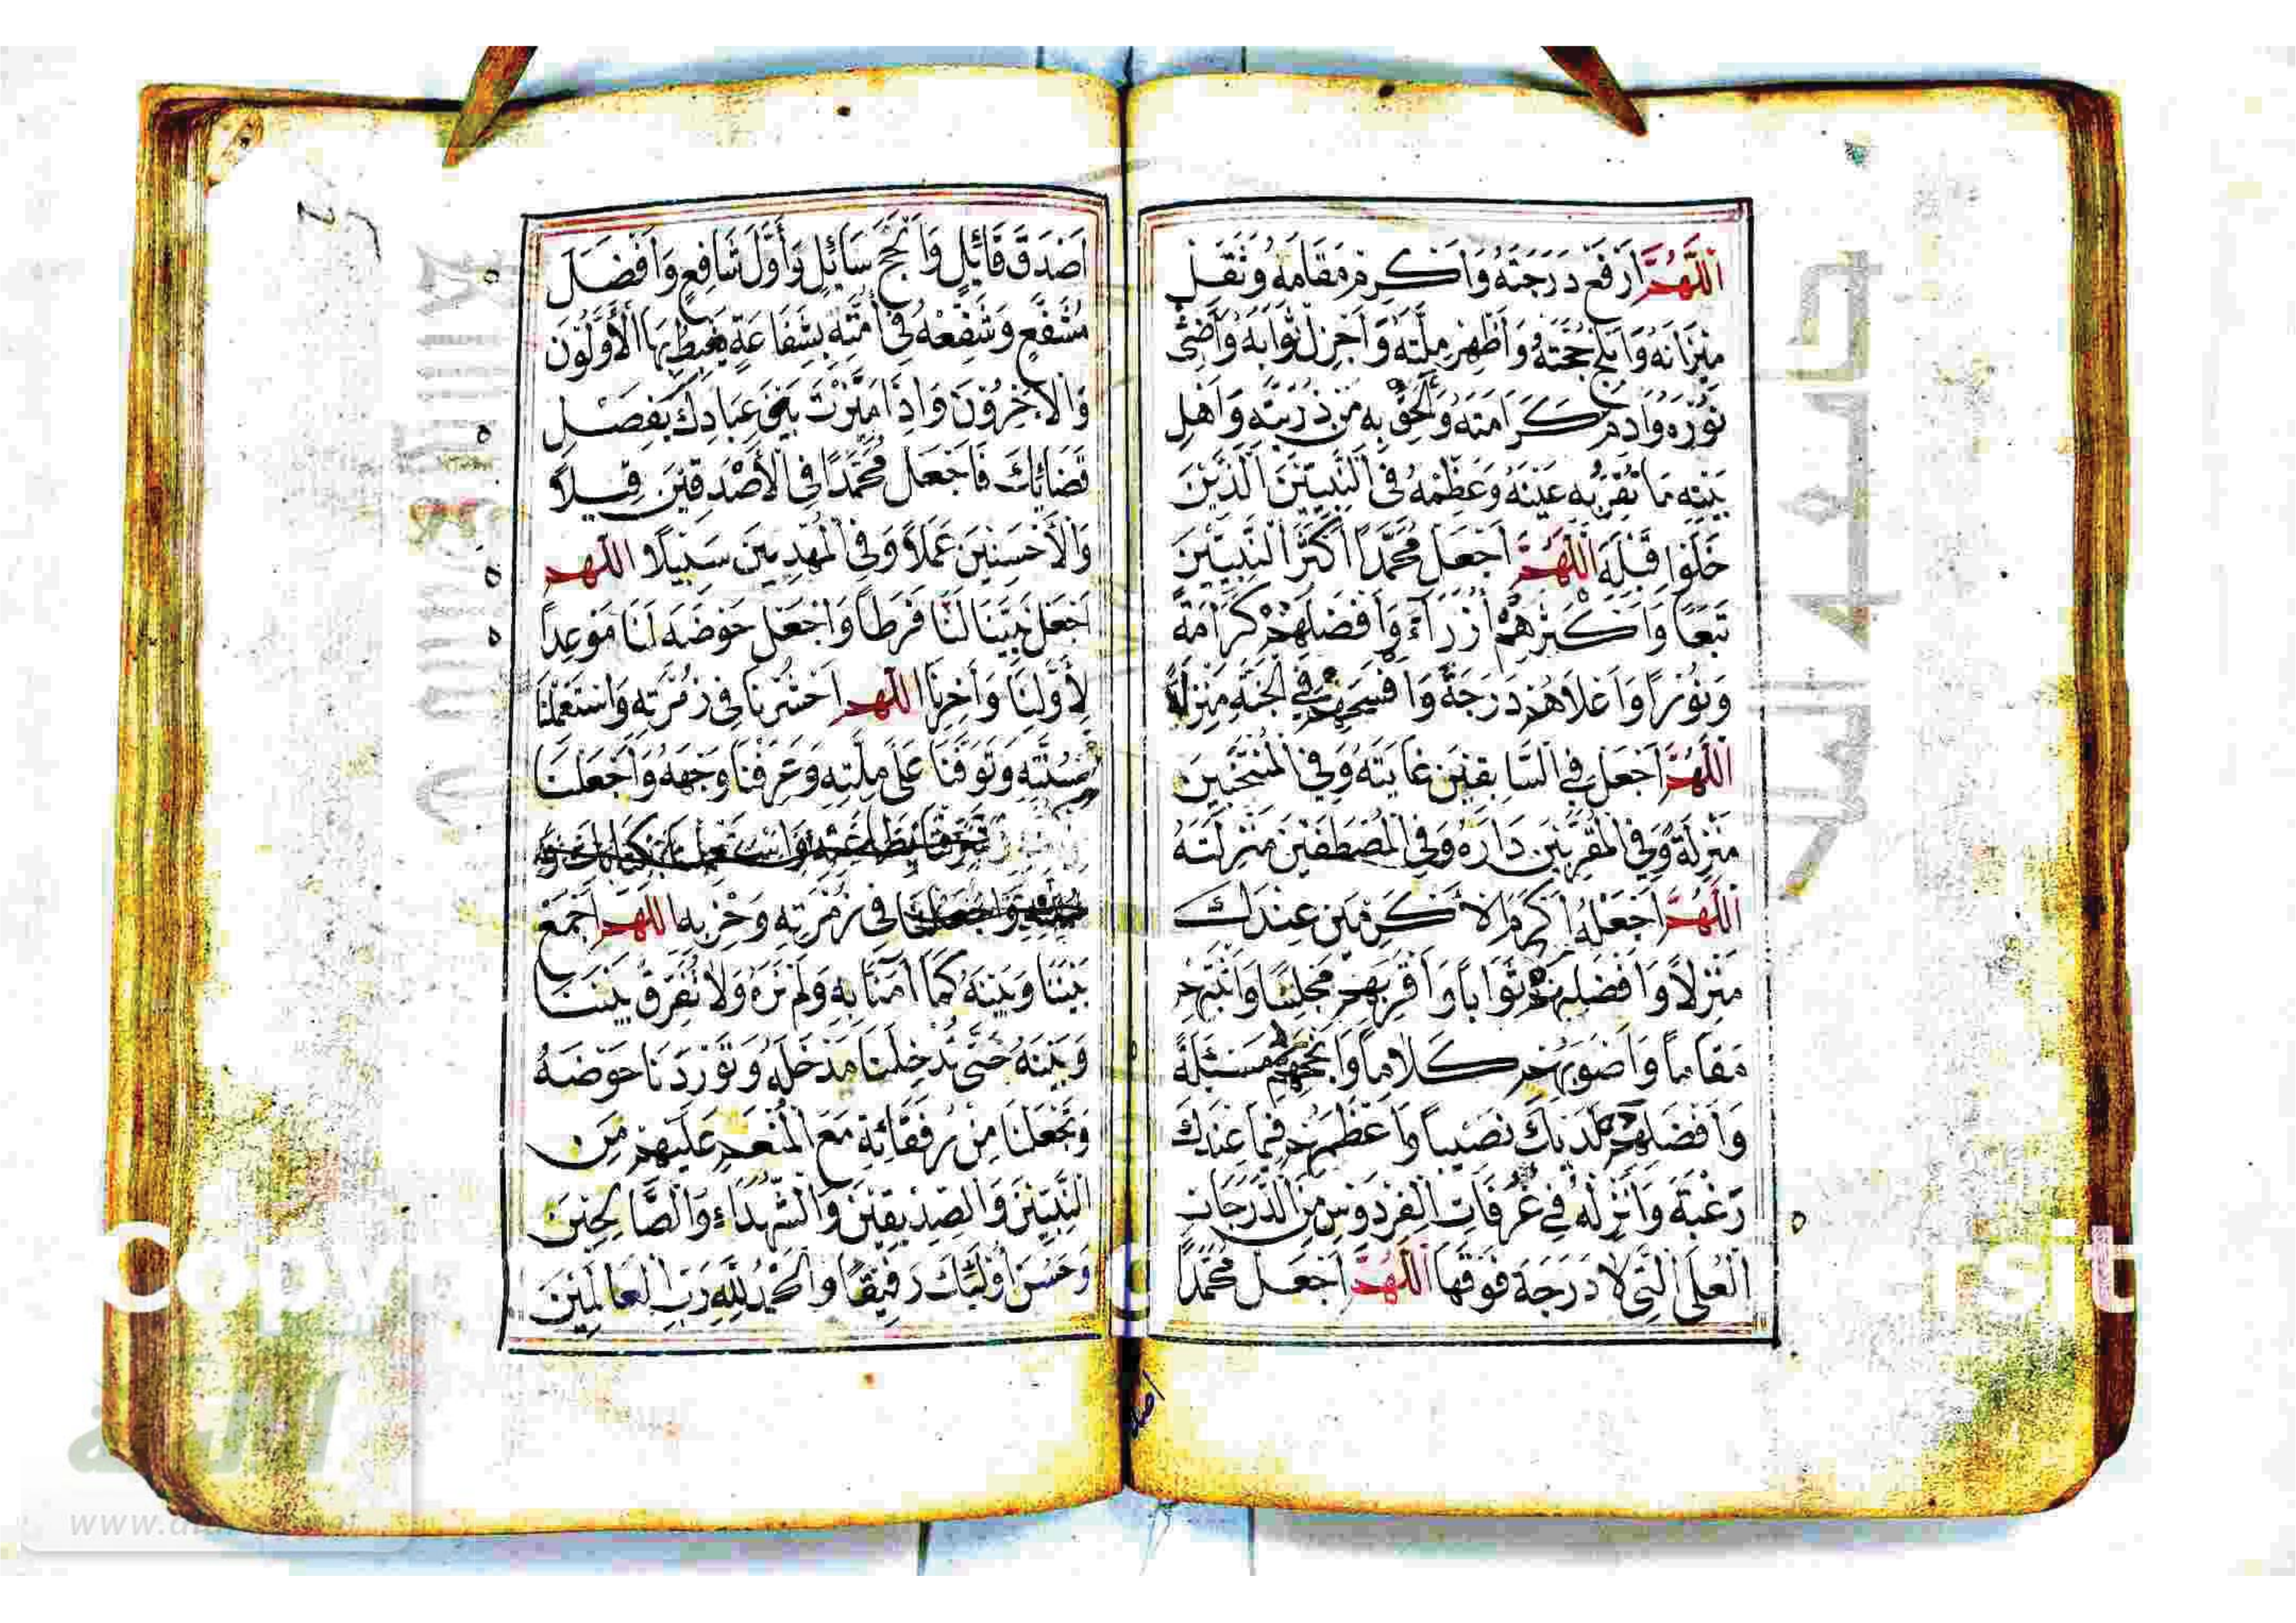 اَللّٰهُمَّ ارْفَعْ دَرَجَتَهُ وَاَكْرِمْ مَقَامَهُ وَثَقِّلْ
مِيْزَانَهُ وَاَبْلِجْ حُجَّتَهُ وَاَظْهِرْ مِلَّتَهُ وَاَجْزِلْ ثَوَابَهُ وَاَضِئْ
نُوْرَهُ وَاَدِمْ كَرَامَتَهُ وَاَلْحِقْ بِهِ مِنْ ذُرِّيَّتِهِ وَاَهْلِ
بَيْتِهِ مَا تَقَرُّ بِهِ عَيْنُهُ وَعَظِّمْهُ فِي النَّبِيِّيْنَ الَّذِيْنَ
خَلَوْا قَبْلَهُ اَللّٰهُمَّ اجْعَلْ مُحَمَّدًا اَكْثَرَ النَّبِيِّيْنَ
تَبَعًا وَاَكْثَرَهُمْ اُزَرَاءً وَاَفْضَلَهُمْ كَرَامَةً
وَنُوْرًا وَاَعْلَاهُمْ دَرَجَةً وَاَفْسَحَهُمْ فِي الْجَنَّةِ مَنْزِلًا
اَللّٰهُمَّ اجْعَلْ فِي السَّابِقِيْنَ غَايَتَهُ وَفِي الْمُنْتَخَبِيْنَ
مَنْزِلَهُ وَفِي الْمُقَرَّبِيْنَ دَارَهُ وَفِي الْمُصْطَفَيْنَ مَنْزِلَتَهُ
اَللّٰهُمَّ اجْعَلْهُ اَكْرَمَ الْاَكْرَمِيْنَ عِنْدَكَ
مَنْزِلًا وَاَفْضَلَهُمْ ثَوَابًا وَاَقْرَبَهُمْ مَجْلِسًا وَاَثْبَتَهُمْ
مَقَامًا وَاَصْوَبَهُمْ كَلَامًا وَاَنْجَحَهُمْ مَسْئَلَةً
وَاَفْضَلَهُمْ لَدَيْكَ نَصِيْبًا وَاَعْظَمَهُمْ فِيْمَا عِنْدَكَ
رَغْبَةً وَاَنْزِلْهُ فِي غُرُفَاتِ الْفِرْدَوْسِ مِنَ الدَّرَجَاتِ
الْعُلَى الَّتِي لَا دَرَجَةَ فَوْقَهَا اَللّٰهُمَّ اجْعَلْ مُحَمَّدًا
اَصْدَقَ قَائِلٍ وَاَنْجَحَ سَائِلٍ وَاَوَّلَ شَافِعٍ وَاَفْضَلَ
مُشَفَّعٍ وَشَفِّعْهُ فِي اُمَّتِهِ بِشَفَاعَةٍ يَغْبِطُهُ بِهَا الْاَوَّلُوْنَ
وَالْاٰخِرُوْنَ وَاِذَا مَيَّزْتَ بَيْنَ عِبَادِكَ بِفَصْلِ
قَضَائِكَ فَاجْعَلْ مُحَمَّدًا فِي الْاَصْدَقِيْنَ قِيْلًا
وَالْاَحْسَنِيْنَ عَمَلًا وَفِي الْمَهْدِيِّيْنَ سَبِيْلًا اَللّٰهُمَّ
اجْعَلْ نَبِيَّنَا لَنَا فَرَطًا وَاجْعَلْ حَوْضَهُ لَنَا مَوْعِدًا
لِاَوَّلِنَا وَاٰخِرِنَا اَللّٰهُمَّ احْشُرْنَا فِي زُمْرَتِهِ وَاسْتَعْمِلْنَا
بِسُنَّتِهِ وَتَوَفَّنَا عَلَى مِلَّتِهِ وَعَرِّفْنَا وَجْهَهُ وَاجْعَلْنَا
فِي زُمْرَتِهِ وَحِزْبِهِ اَللّٰهُمَّ اجْمَعْ
بَيْنَنَا وَبَيْنَهُ كَمَا اٰمَنَّا بِهِ وَلَمْ نَرَهُ وَلَا تُفَرِّقْ بَيْنَنَا
وَبَيْنَهُ حَتَّى تُدْخِلَنَا مَدْخَلَهُ وَتُوْرِدَنَا حَوْضَهُ
وَتَجْعَلَنَا مِنْ رُفَقَائِهِ مَعَ الْمُنْعَمِ عَلَيْهِمْ مِنَ
النَّبِيِّيْنَ وَالصِّدِّيْقِيْنَ وَالشُّهَدَاءِ وَالصَّالِحِيْنَ
وَحَسُنَ اُولٰئِكَ رَفِيْقًا وَالْحَمْدُ لِلّٰهِ رَبِّ الْعَالَمِيْنَ